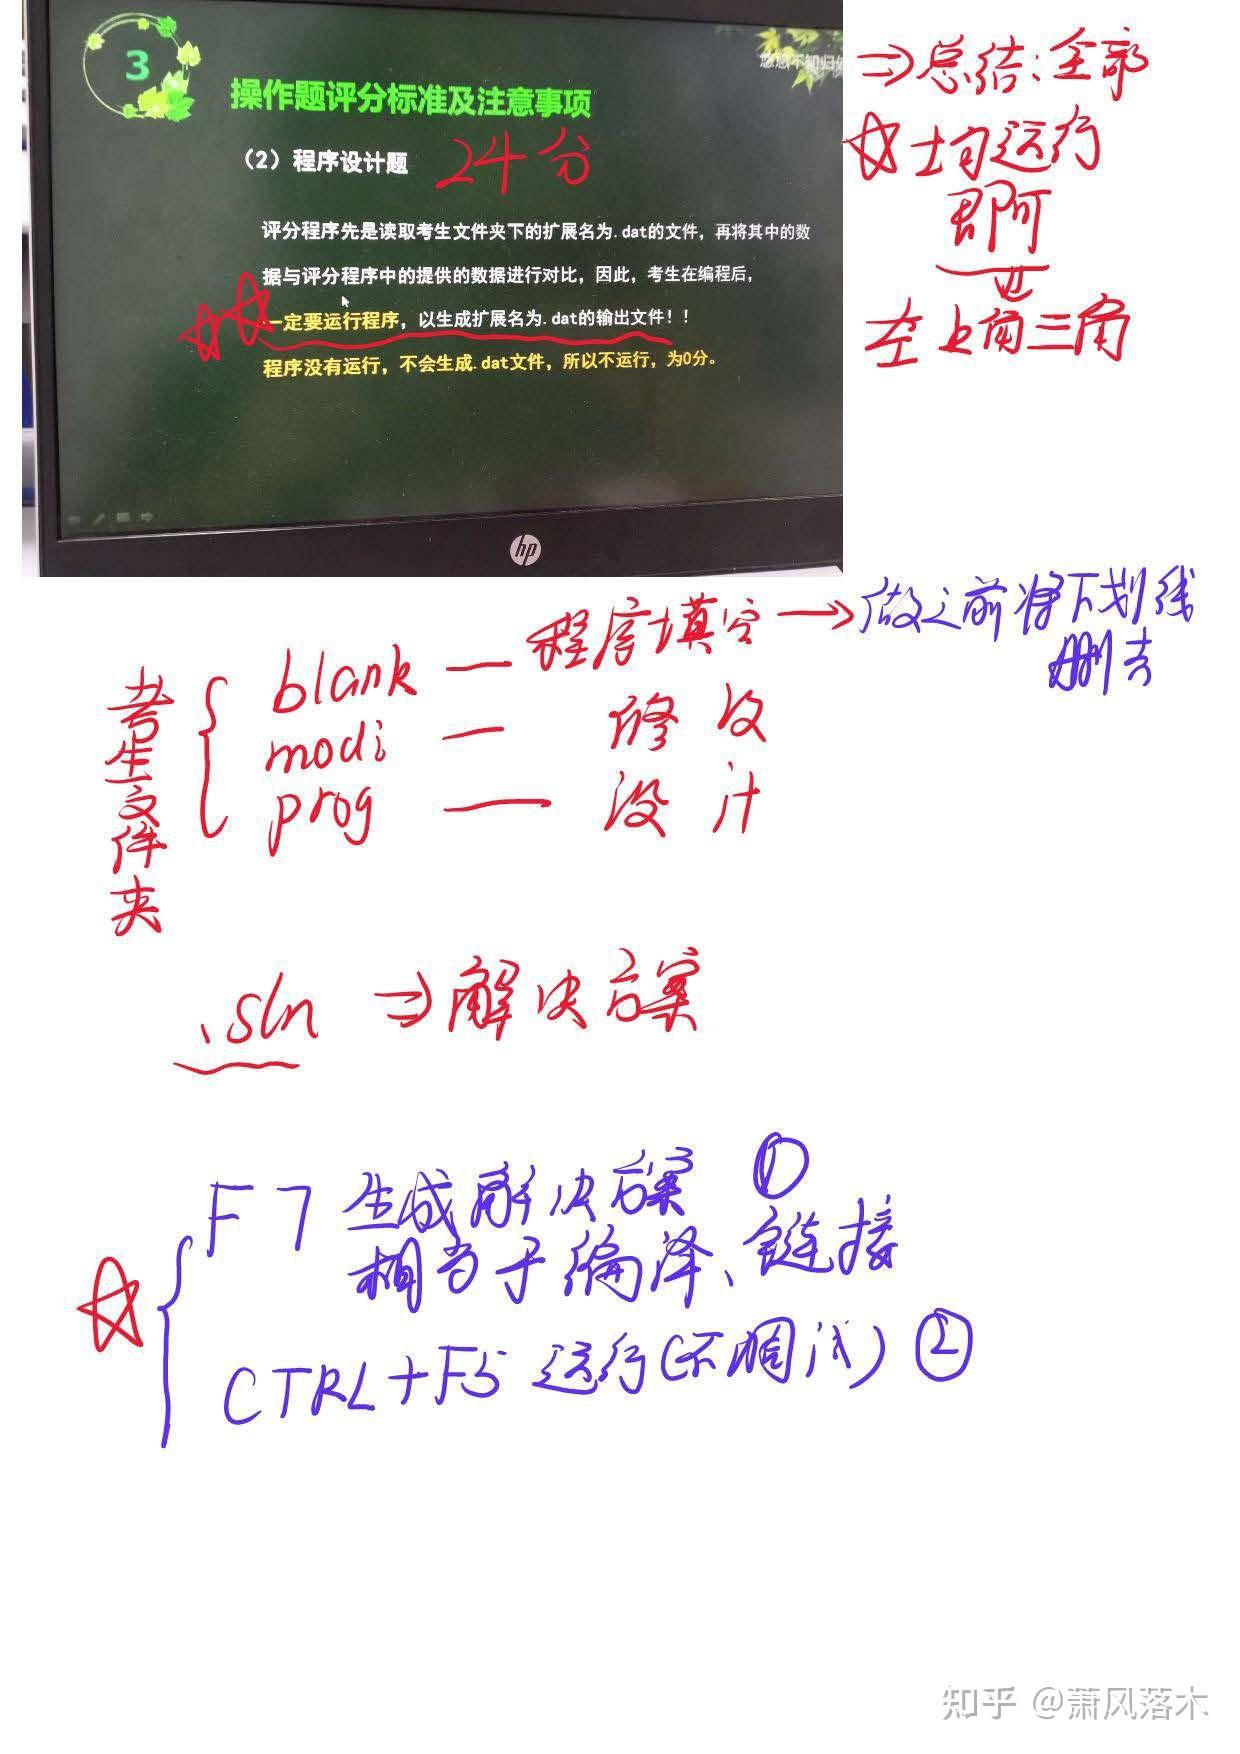 3
悠悠不知归
操作题评分标准及注意事项
(2)程序设计题 24分
评分程序先是读取考生文件夹下的扩展名为.dat的文件，再将其中的数
据与评分程序中的提供的数据进行对比，因此，考生在编程后，
一定要运行程序，以生成扩展名为.dat的输出文件！！
程序没有运行，不会生成.dat文件，所以不运行，为0分。
hp
⇒总结:全部
均运行
即可
⇓
左上角三角
考生文件夹
blank — 程序填空 → 做之前将下划线
删去
modi — 修改
prog — 设计
.sln ⇒解决方案
F7 生成解决方案 ①
相当于编译、链接
CTRL+F5 运行(不调试) ②
知乎 @萧风落木